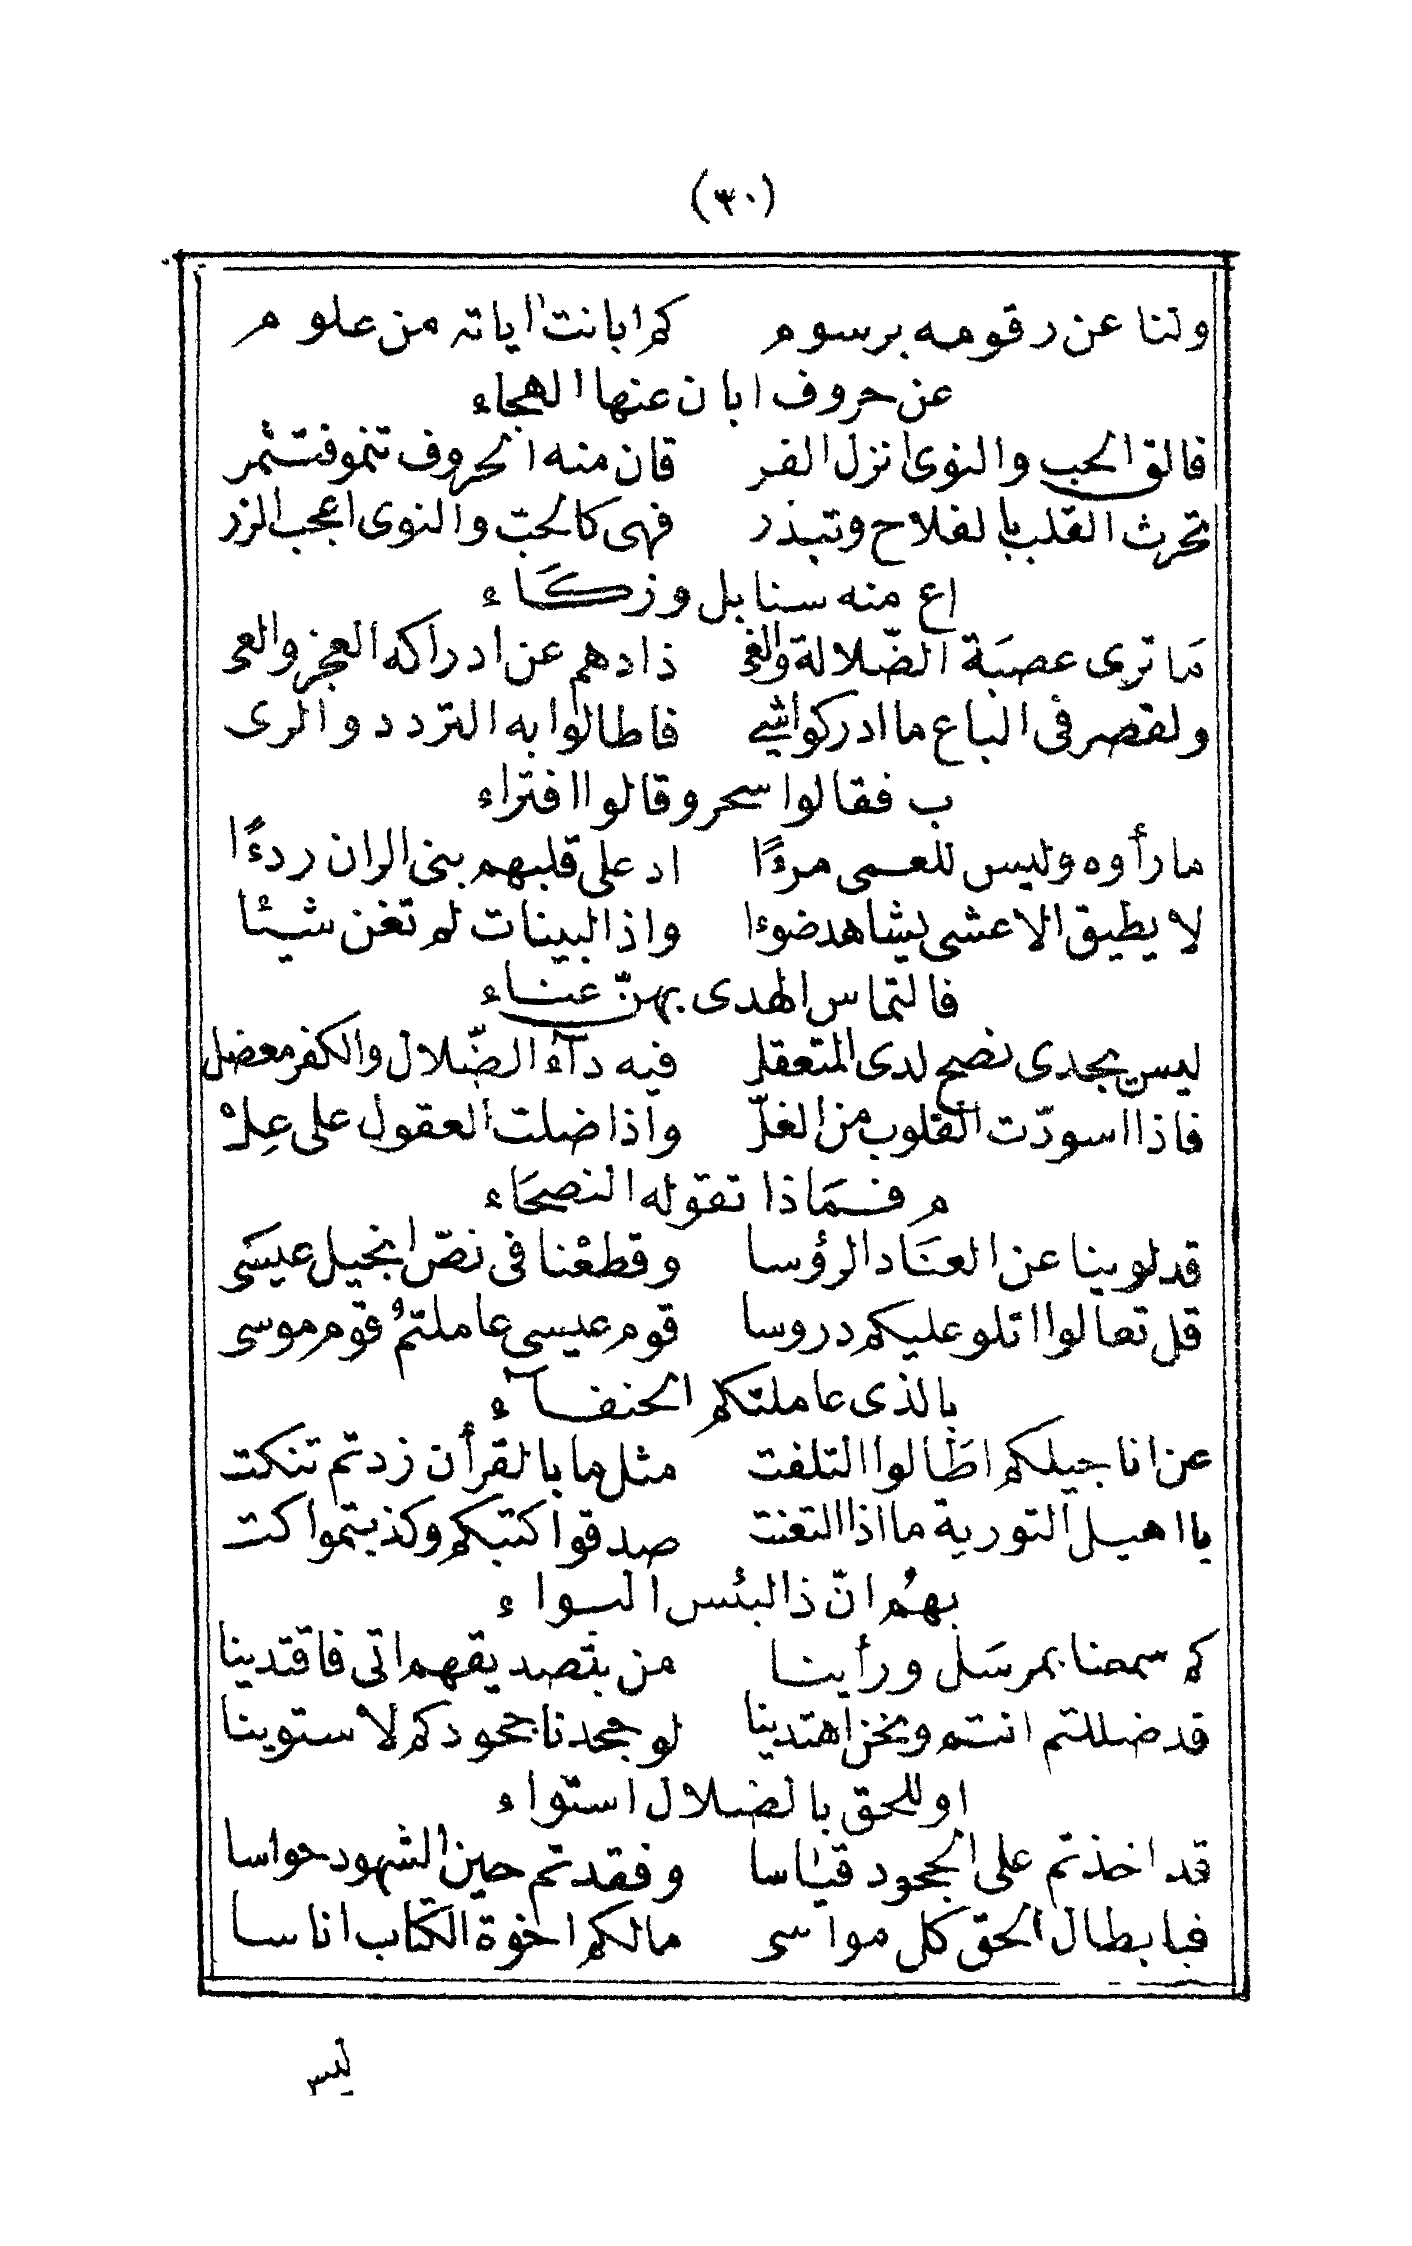 (٣٠)
ولنا عن رقومه برسوم كم ابانت اياته من علوم
عن حروف ابان عنها الهجاء
فالق الحب والنوى انزل الفر قان منه الحروف تنمو فتثمر
تحرث القلب بالفلاح وتبذر فهى كالحبّ والنوى اعجب الزر
اع منه سنابل وزكَاء
مَا ترى عصبَة الضّلالة والغى ذادهم عن ادراكه العجز والعى
ولقصر فى الباع ما ادركوا شئ فاطالوا به التردد والرى
ب فقالوا سحر وقالوا افتراء
ما رأوه وليس للعمى مرءًا اد على قلبهم بنى الران ردءًا
لا يطيق الاعشى يشاهد ضوءا واذ البينات لم تغن شيئا
فالتماس الهدى بهنّ عناء
ليس يجدى نصح لدى المتعقل فيه دآء الضّلال والكفر معضل
فاذا اسودّت القلوب من الغلّ واذا ضلت العقول على عِلْ
م فمَاذا تقوله النصحَاء
قد لوينا عن العنَاد الرؤسا وقطعْنا فى نصّ انجيل عيسَى
قل تعالوا اتلو عليكم دروسا قوم عيسى عاملتمُ قوم موسى
بالذى عاملتكم الحنفآء
عن اناجيلكم اطَالوا التلفت مثل ما بالقرأن زدتم تنكت
يا اهيل التورية ما اذا التعنت صدقوا كتبكم وكذبتموا كت
بهُم انّ ذا لبئس البواء
كم سمعنا بمرسَل ورأينا من بتصديقهم اتى فاقتدينا
قد ضللتم انتم ونحن اهتدينا لو جحدنا جحودكم لاستوينا
او للحق بالضلال استواء
قد اخذتم على الجحود قياسا وفقدتم حين الشهود حواسا
فبابطال الحق كل مواسى مالكم اخوة الكتاب اناسا
ليس